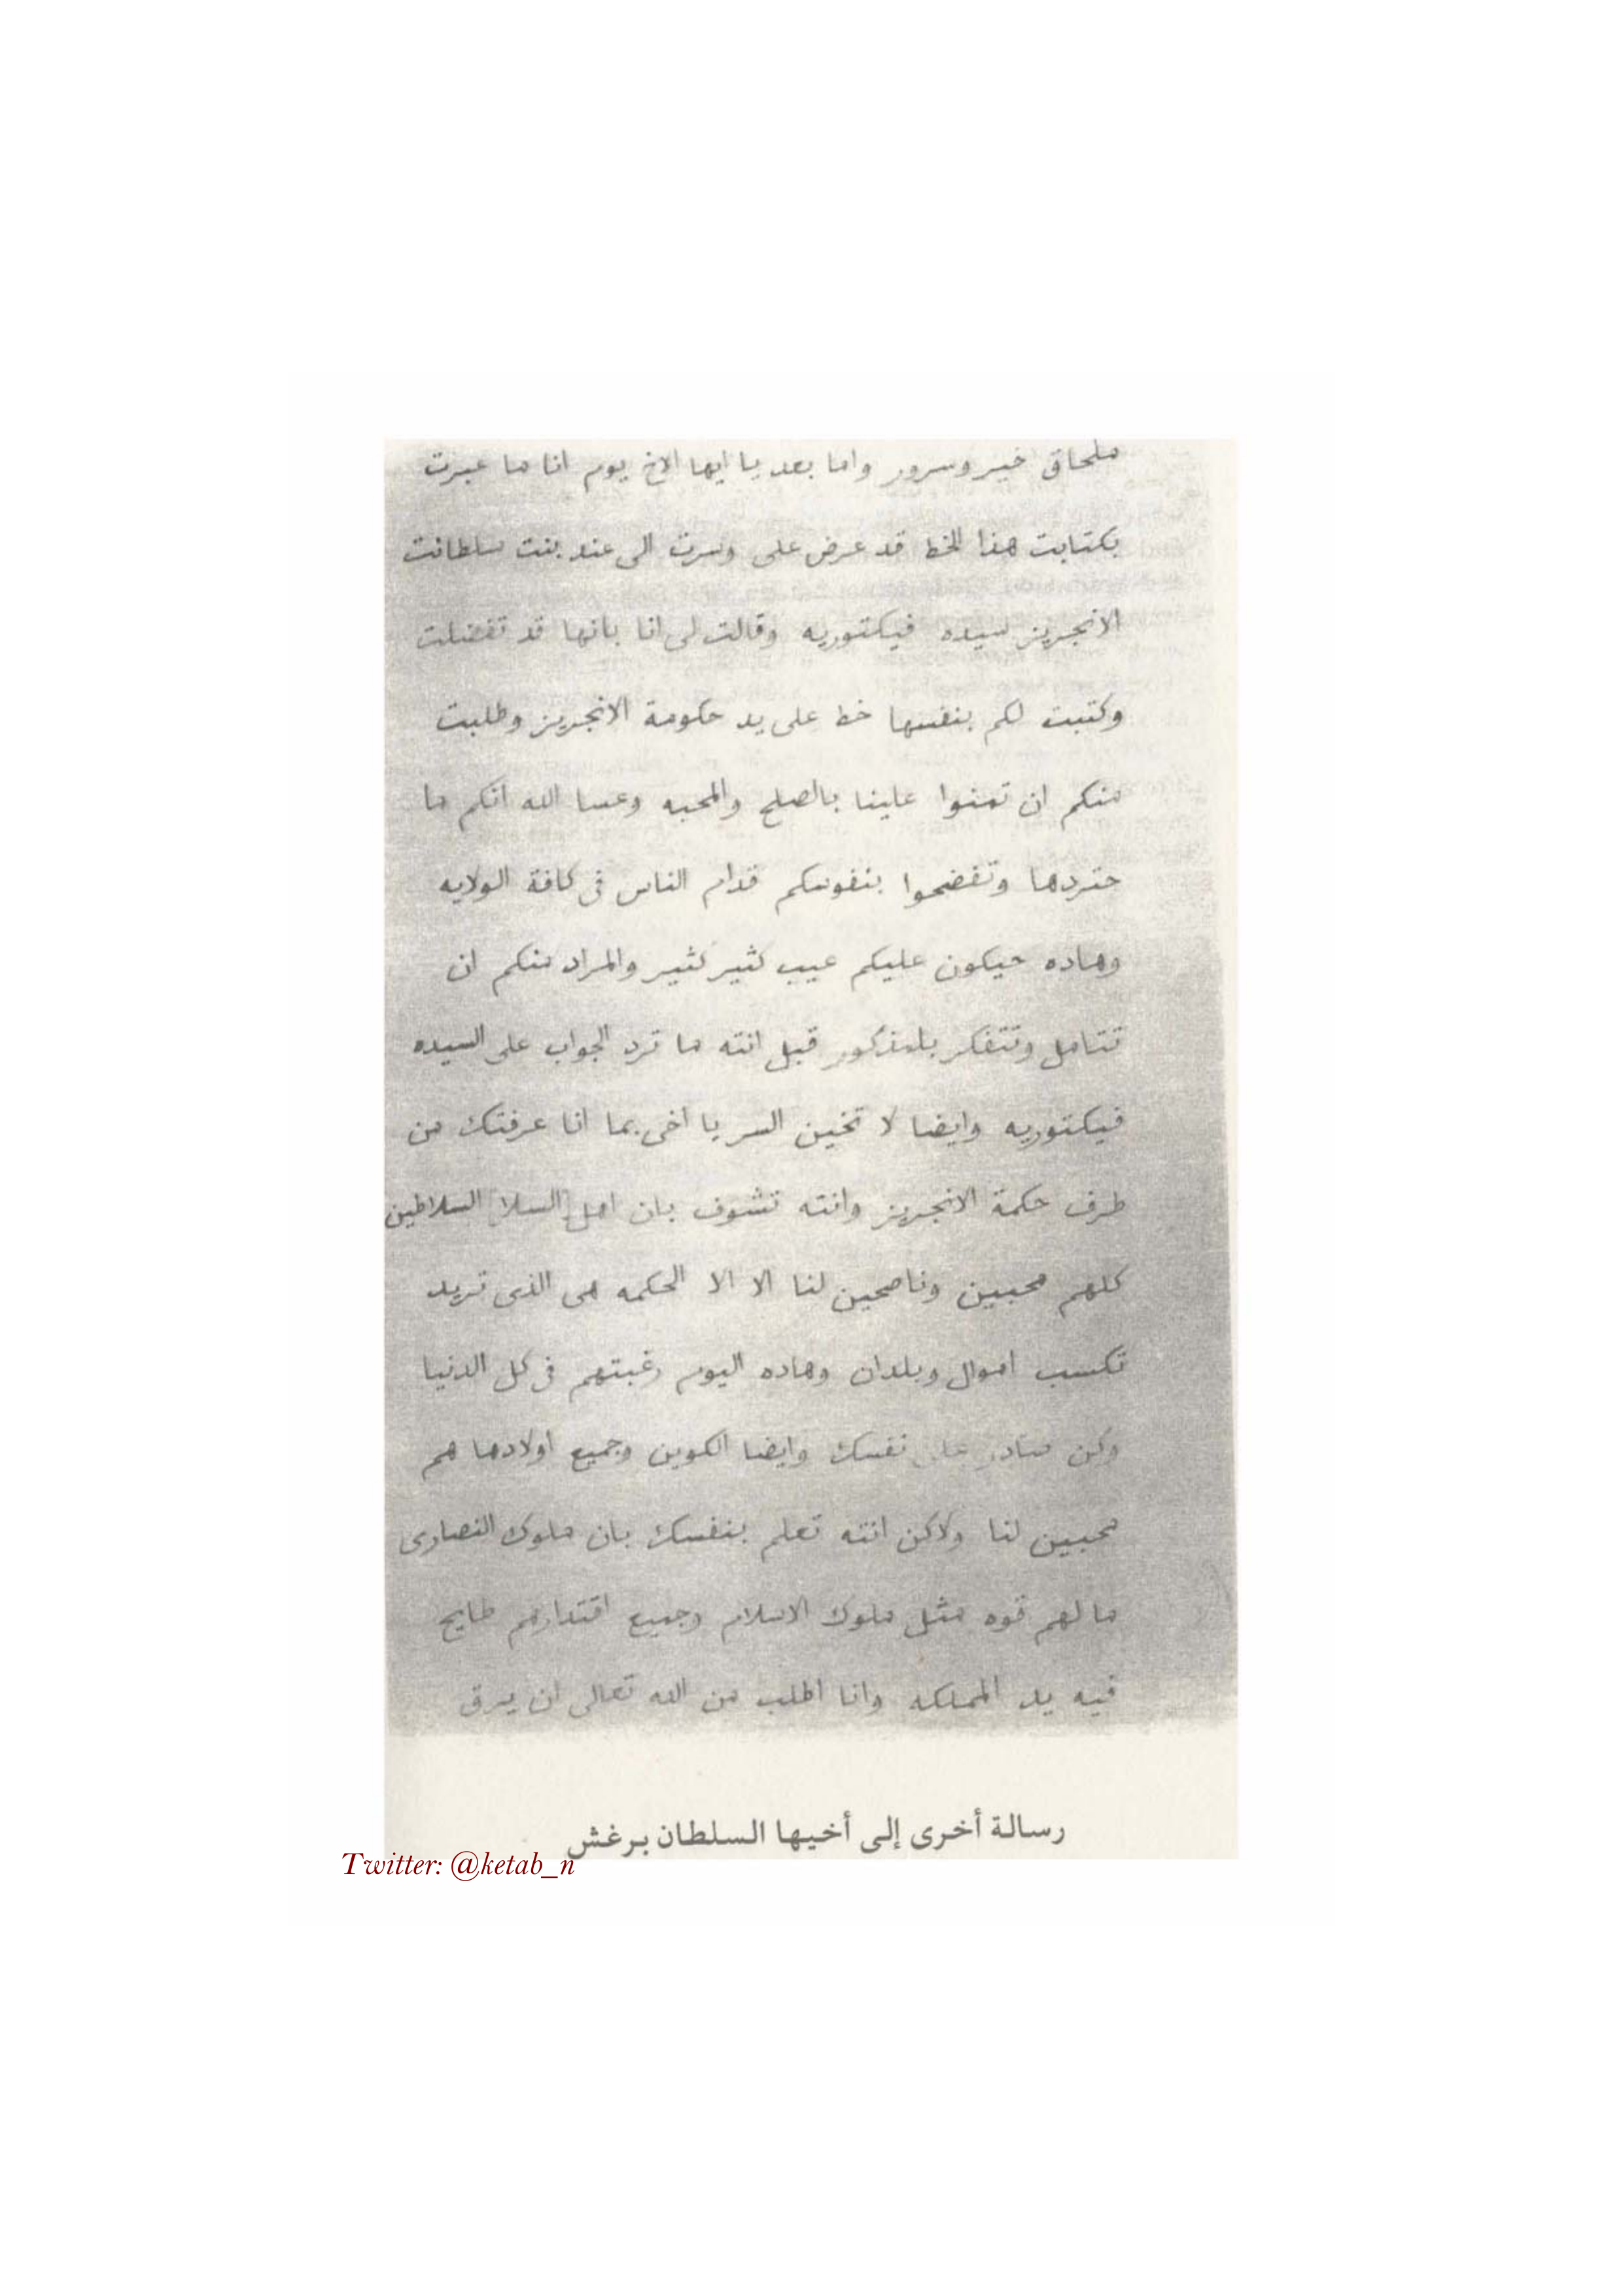 ملحاق خير وسرور واما بعد يا ايها الاخ يوم انا ما عبرت
بكتابت هذا الخط قد عرض على وسرت الى عند بنت سلطانت
الانجريز سيده فيكتوريه وقالت لى انا بانها قد تفضلت
وكتبت لكم بنفسها خط على يد حكومة الانجريز وطلبت
منكم ان تمنوا علينا بالصلح والمحبه وعسا الله انكم ما
حتردها وتفضحوا بنفوسكم قدام الناس فى كافة الولايه
وهاده حيكون عليكم عيب كثير كثير والمراد منكم ان
تتامل وتتفكر بلمذكور قبل انته ما ترد الجواب على السيده
فيكتوريه وايضا لا تخين السر يا اخى بما انا عرفتك من
طرف حكمة الانجريز وانته تشوف بان اهل [السلا] السلاطين
كلهم محبين وناصحين لنا الا الا الحكمه هى الذى تريد
تكسب اموال وبلدان وهاده اليوم رغبتهم فى كل الدنيا
وكن على نفسك وايضا الكوين وجميع اولادها هم
محبين لنا ولاكن انته تعلم بنفسك بان ملوك النصارى
ما لهم قوه مثل ملوك الاسلام وجميع اقتدارهم طايح
فيه يد المملكه وانا اطلب من الله تعالى ان يرق
رسالة أخرى إلى أخيها السلطان برغش
Twitter: @ketab_n